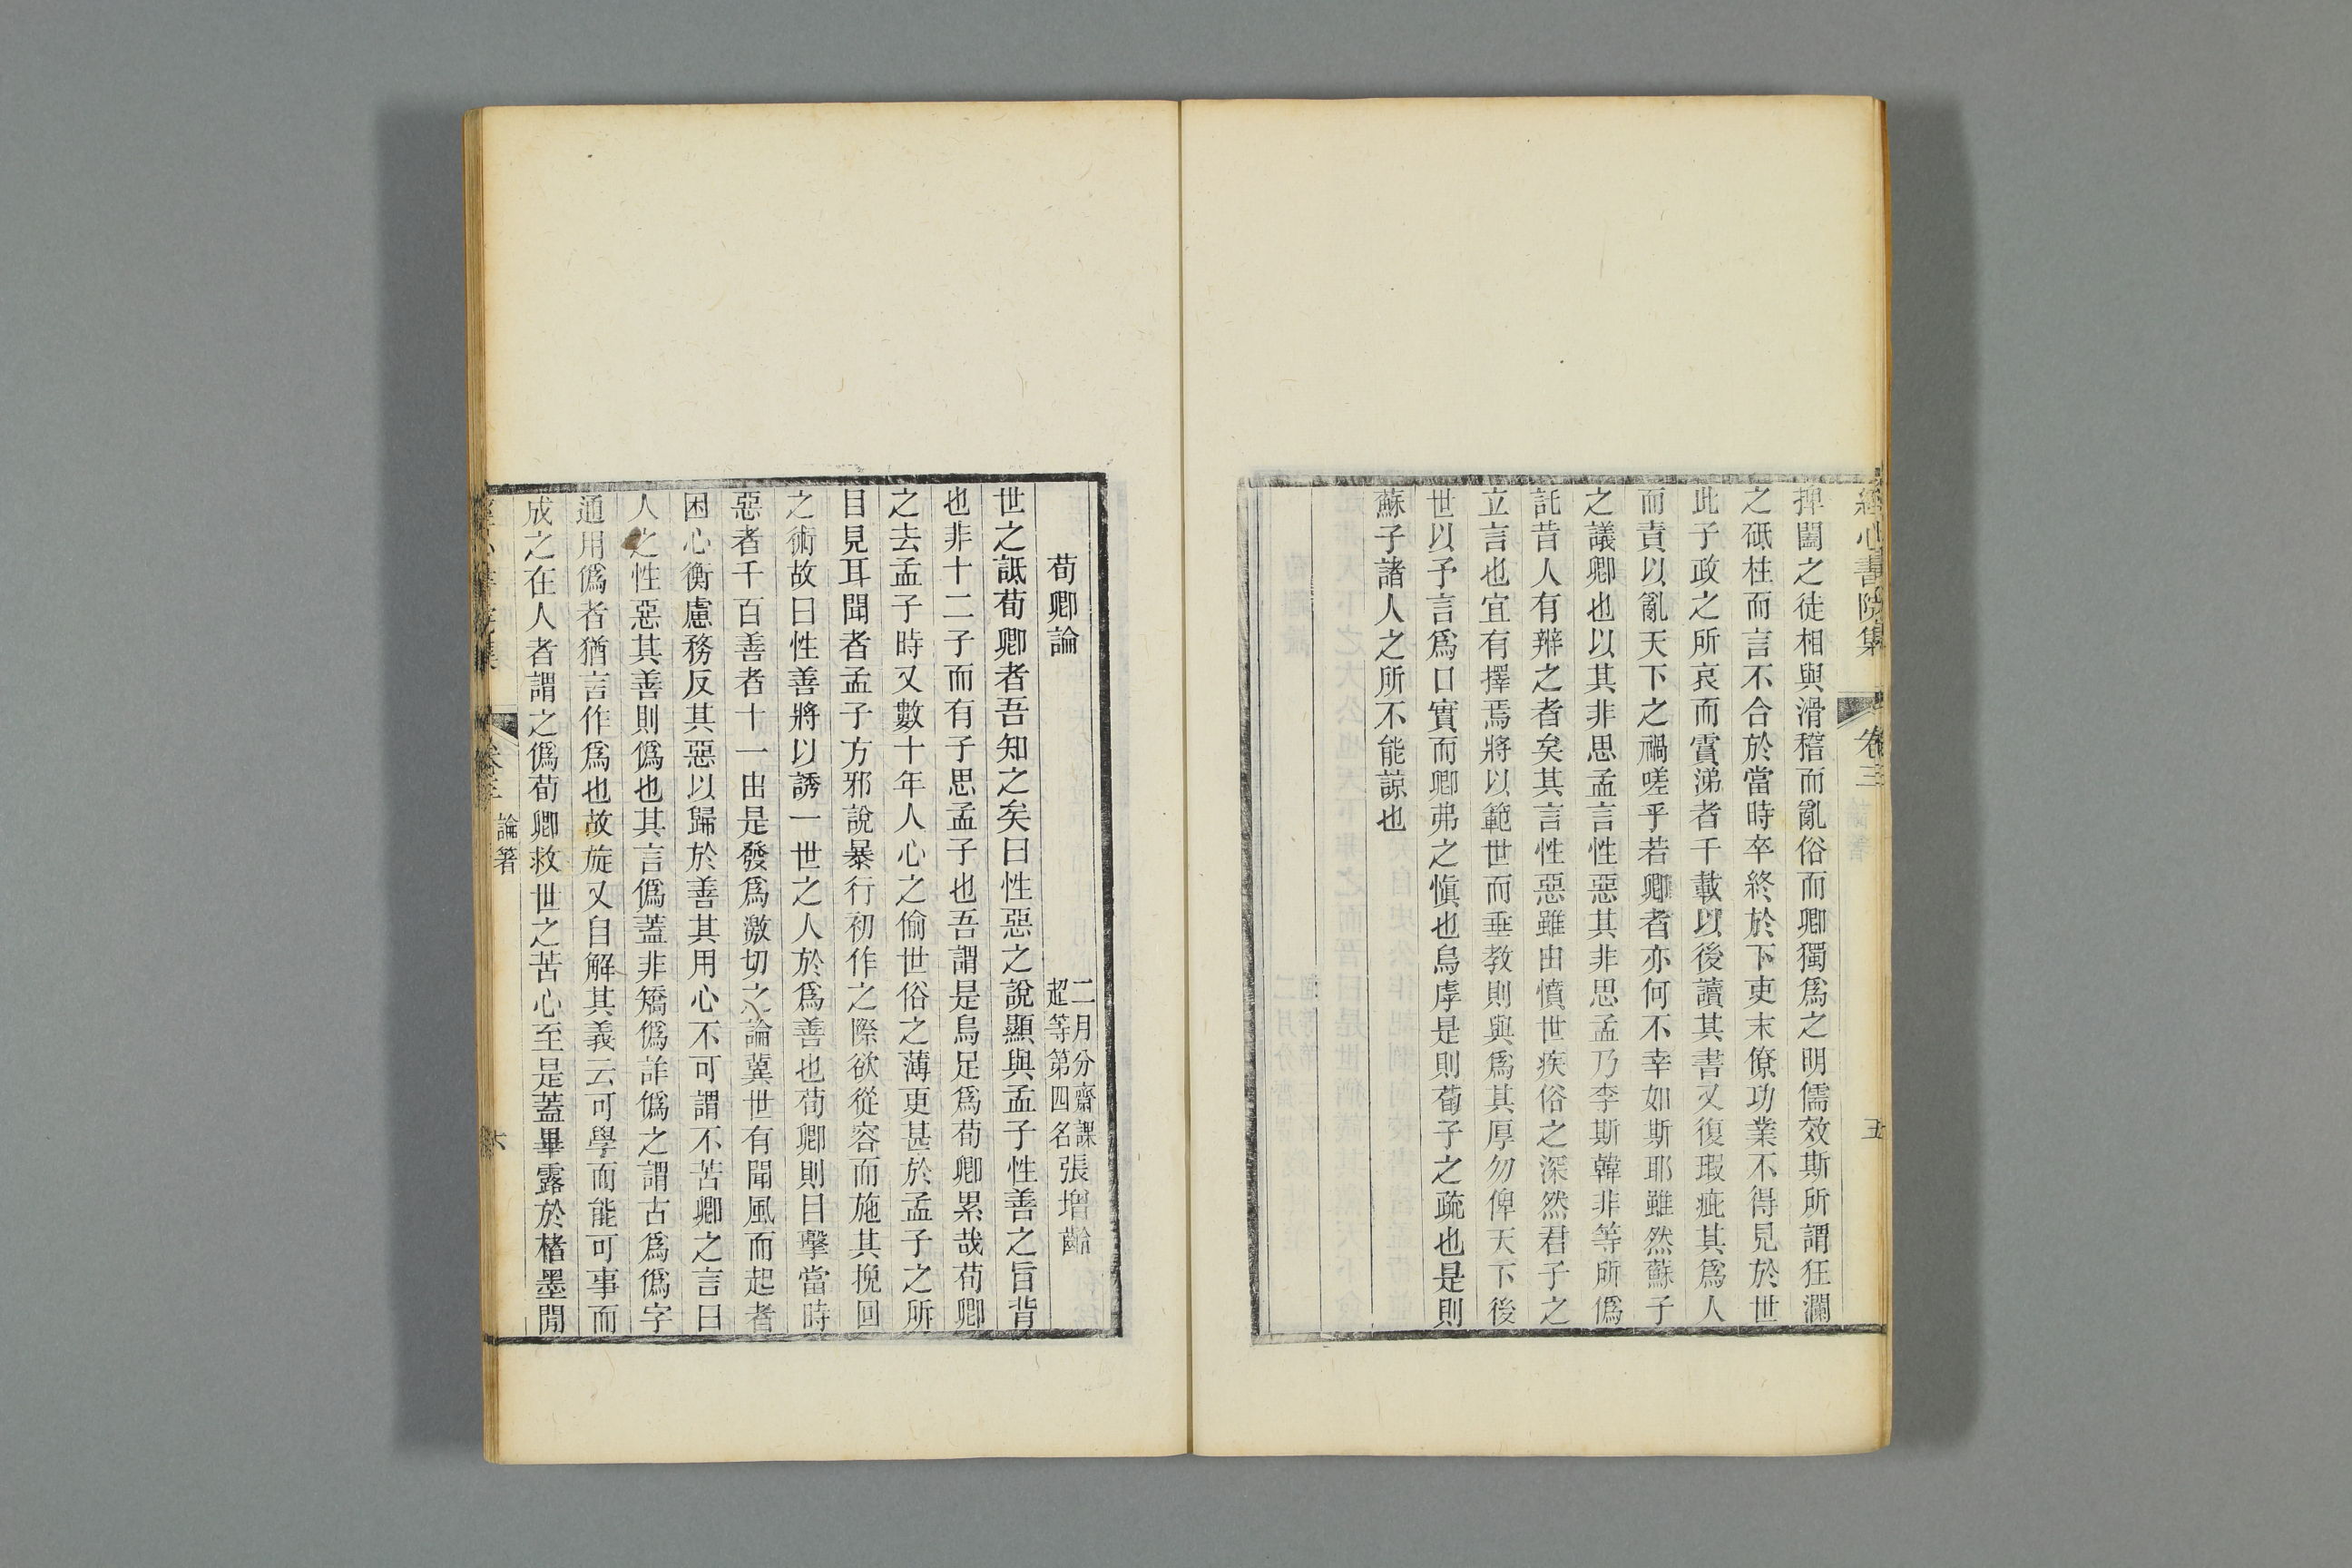 經心書院集 卷三 五
捭闔之徒相與滑稽而亂俗而卿獨爲之明儒效斯所謂狂瀾
之砥柱而言不合於當時卒終於下吏末僚功業不得見於世
此子政之所哀而霣涕者千載以後讀其書又復瑕疵其爲人
而責以亂天下之禍嗟乎若卿者亦何不幸如斯耶雖然蘇子
之議卿也以其非思孟言性惡其非思孟乃李斯韓非等所僞
託昔人有辨之者矣其言性惡雖由憤世疾俗之深然君子之
立言也宜有擇焉將以範世而垂教則與爲其厚勿俾天下後
世以予言爲口實而卿弗之愼也烏虖是則荀子之疏也是則
蘇子諸人之所不能諒也
荀卿論
二月分齋課
超等第四名
張增齡
世之詆荀卿者吾知之矣曰性惡之說顯與孟子性善之旨背
也非十二子而有子思孟子也吾謂是烏足爲荀卿累哉荀卿
之去孟子時又數十年人心之偷世俗之薄更甚於孟子之所
目見耳聞者孟子方邪說暴行初作之際欲從容而施其挽回
之術故曰性善將以誘一世之人於爲善也荀卿則目擊當時
惡者千百善者十一出是發爲激切之論冀世有聞風而起者
困心衡慮務反其惡以歸於善其用心不可謂不苦卿之言曰
人之性惡其善則僞也其言僞蓋非矯僞詐僞之謂古爲僞字
通用僞者猶言作爲也故旋又自解其義云可學而能可事而
成之在人者謂之僞荀卿救世之苦心至是蓋畢露於楮墨閒
經心書院集 卷三 論著 六